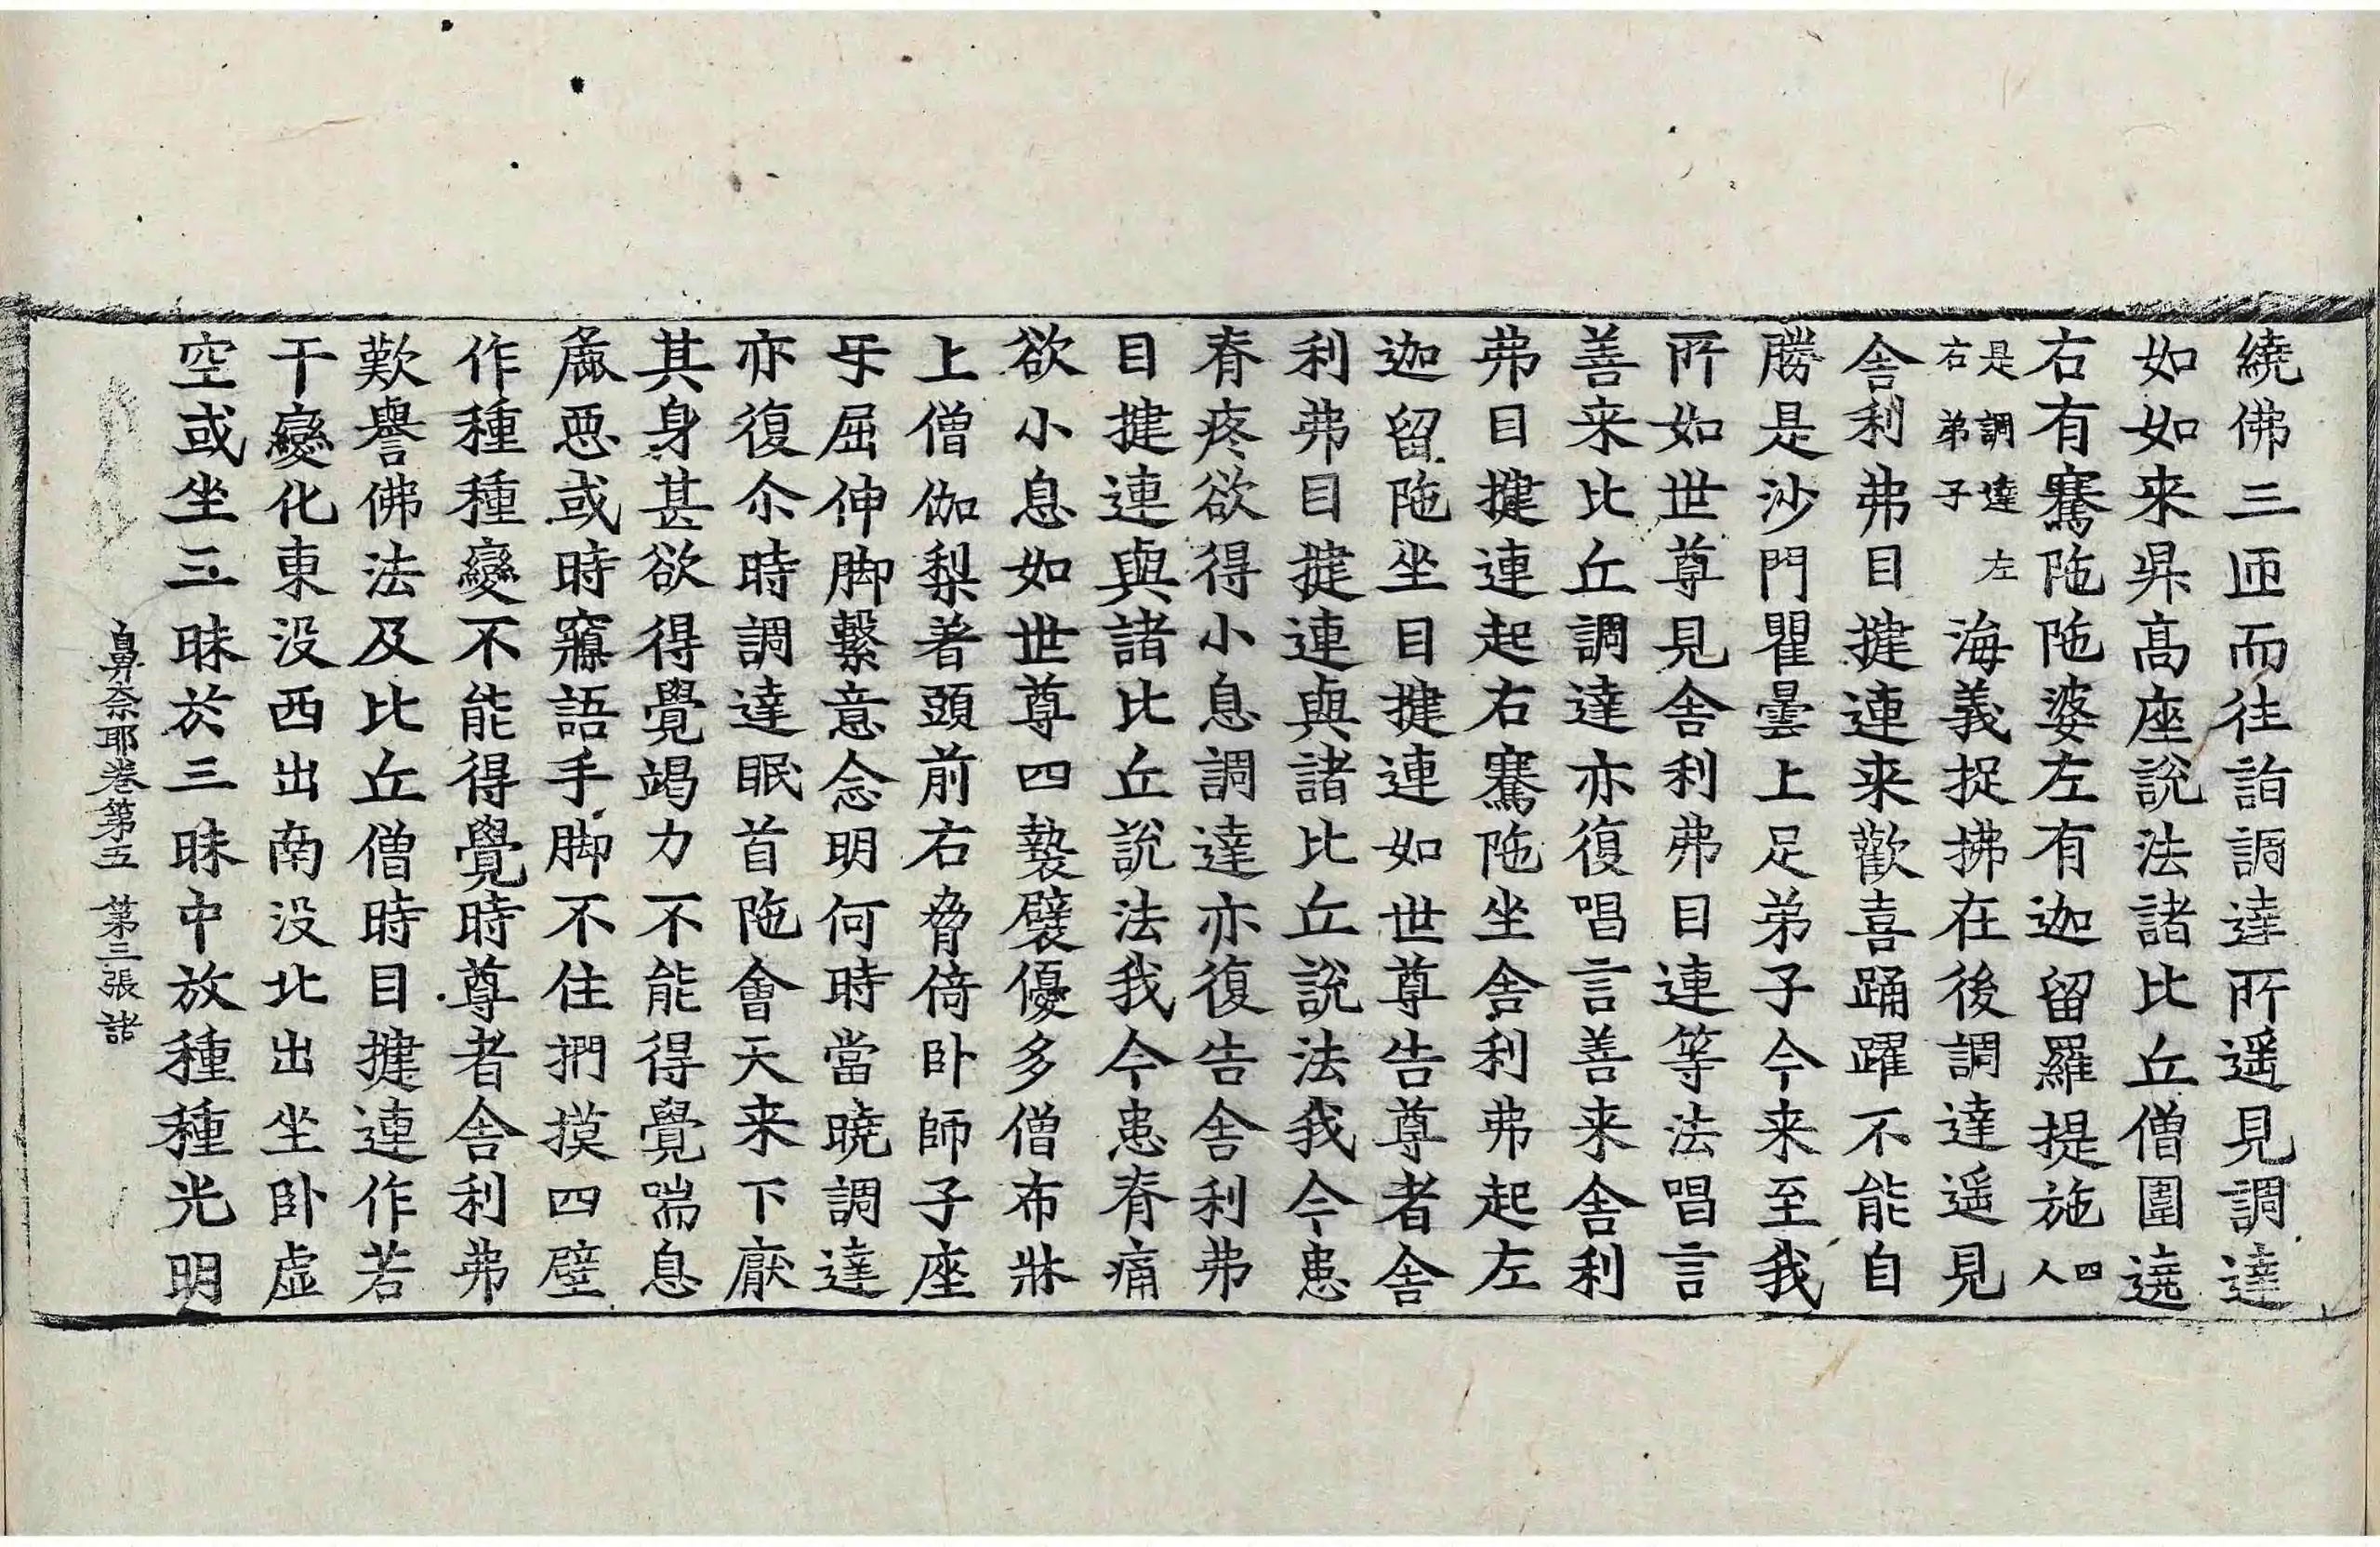 繞佛三匝而往詣調達所遥見調達
如如来昇高座說法諸比丘僧圍遶
右有騫陁陁婆左有迦留羅提施四人
是調達左右弟子海義捉拂在後調達遥見
舍利弗目揵連来歡喜踊躍不能自
勝是沙門瞿曇上足弟子今来至我
所如世尊見舍利弗目連等法唱言
善来比丘調達亦復唱言善来舍利
弗目揵連起右騫陁坐舍利弗起左
迦留陁坐目揵連如世尊告尊者舍
利弗目揵連與諸比丘說法我今患
脊疼欲得小息調達亦復告舍利弗
目揵連與諸比丘說法我今患脊痛
欲小息如世尊四褻襞優多僧布牀
上僧伽梨著頭前右脅倚卧師子座
㸦屈伸脚繫意念明何時當曉調達
亦復尒時調達眠首陁會天来下厭
其身甚欲得覺竭力不能得覺喘息
麁惡或時寱語手脚不住捫摸四壁
作種種變不能得覺時尊者舍利弗
歎譽佛法及比丘僧時目揵連作若
干變化東没西出南没北出坐卧虛
空或坐三昧於三昧中放種種光明
鼻奈耶卷第五 第三張 諸